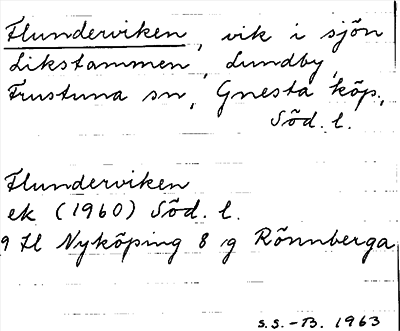 Flunderviken, vik i sjön
Likstammen, Lundby,
Frustuna sn, Gnesta köp.,
Söd. l.
Flunderviken
ek (1960) Söd. l.
9 H Nyköping 8 g Rönnberga
S.S.-B. 1963